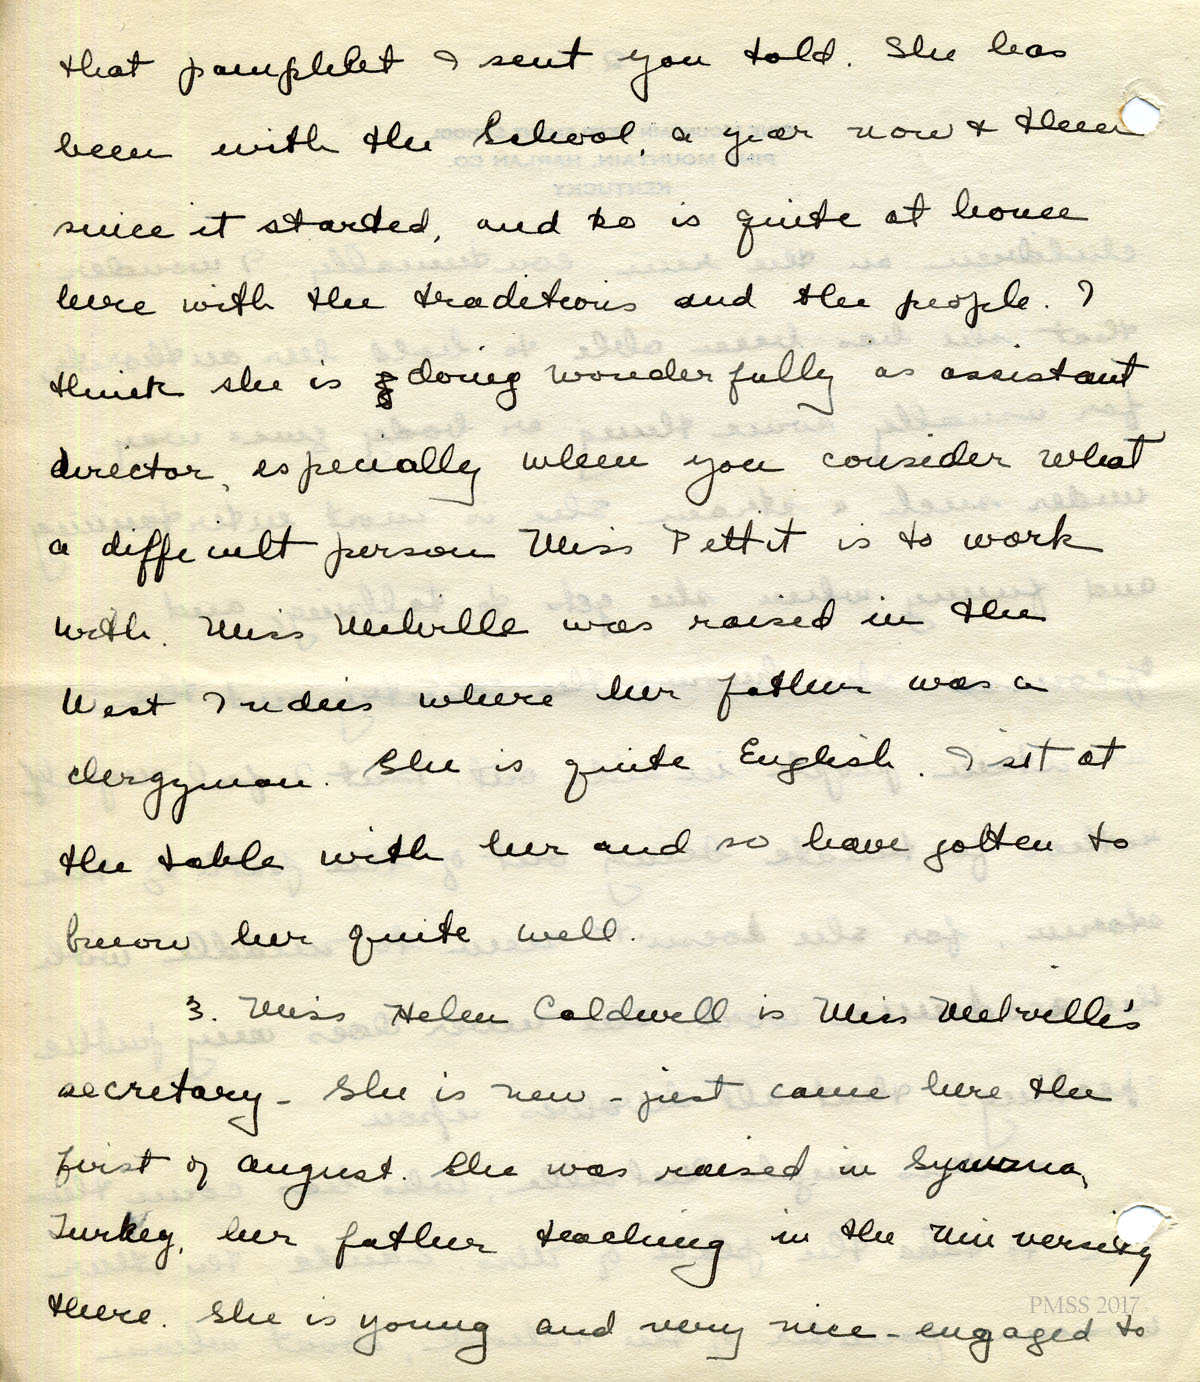 that pamphlet I sent you told. She has
been with the School, a year now & then
since it started, and so is quite at home
here with the traditions and the people. I
think she is doing wonderfully as assistant
director, especially when you consider what
a difficult person Miss Pettit is to work
with. Miss Melville was raised in the
West Indies where her father was a
clergyman. She is quite English. I sit at
the table with her and so have gotten to
know her quite well.
3. Miss Helen Caldwell is Miss Melville's
secretary - She is new - just came here the
first of August. She was raised in
Turkey, her father teaching in the University
there. She is young and very nice - engaged to
PMSS 2017
PINE MOUNTAIN, HARLAN CO.
KENTUCKY